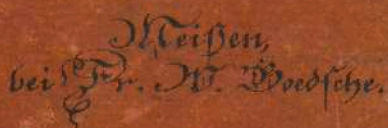 Meißen,
bei Fr. W. Goedsche.